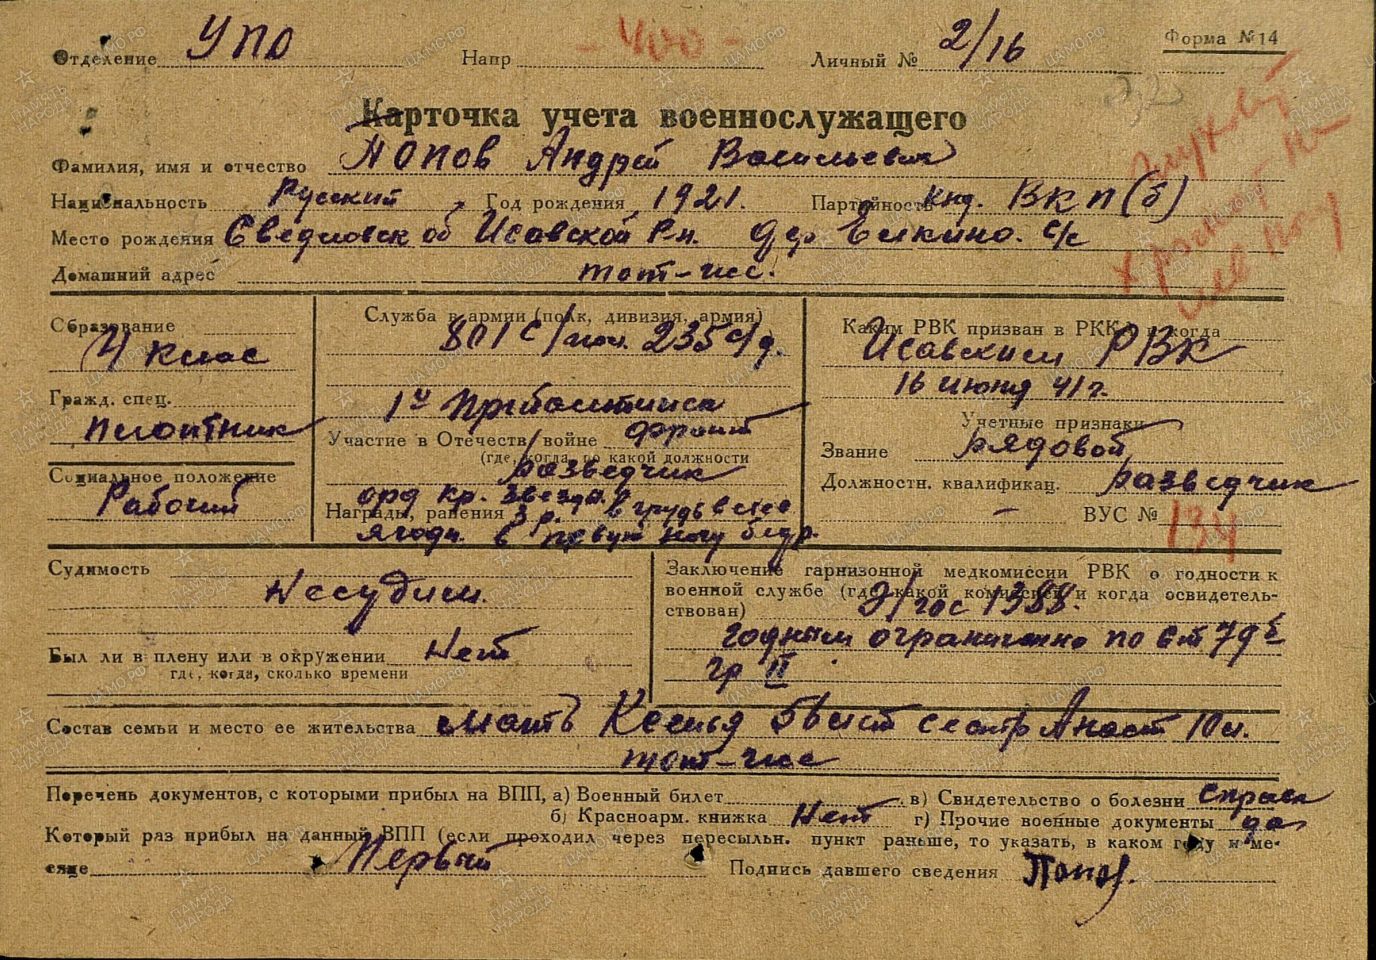 Форма №14
Отделение УПО Напр - 400 - Личный № 2/16
Карточка учета военнослужащего
Фамилия, имя и отчество Попов Андрей Васильевич
Национальность Русский Год рождения 1921. Партийность кнд. ВКП(б)
Место рождения Сведловск об Исовской Р-н. дер Елкино. с/с
Домашний адрес тот-же.
Образование
4 клас
Гражд. спец.
плотник
Социальное положение
Рабочий
Служба в армии (полк, дивизия, армия)
801 с/пол. 235 с/д.
1й Прибалтийск
Участие в Отечеств. войне фронт
(где, когда, по какой должности
разведчик
орд кр. звезда, в грудь в лев
Награды, ранения 3 р.
ягоди. в первую ногу бедр.
Каким РВК призван в РККА и когда
Исовским РВК
16 июня 41 г.
Учетные признаки
Звание рядовой
Должностн. квалификац. разведчик
- ВУС № 134
Судимость
Несудим.
Был ли в плену или в окружении Нет
где, когда, сколько времени
Заключение гарнизонной медкомиссии РВК о годности к
военной службе (где, какой комиссией и когда освидетель-
ствован) Э/гос 1388.
годным ограниченно по ст 7д б
гр II
Состав семьи и место ее жительства мать сестр Анаст 10 л.
тот-же
Перечень документов, с которыми прибыл на ВПП, а) Военный билет в) Свидетельство о болезни справк
б) Красноарм. книжка Нет г) Прочие военные документы да
Который раз прибыл на данный ВПП (если проходил через пересыльн. пункт раньше, то указать, в каком году и ме-
сяце Первый Подпись давшего сведения Попов.
ПАМЯТЬ НАРОДА
ЦАМО.РФ